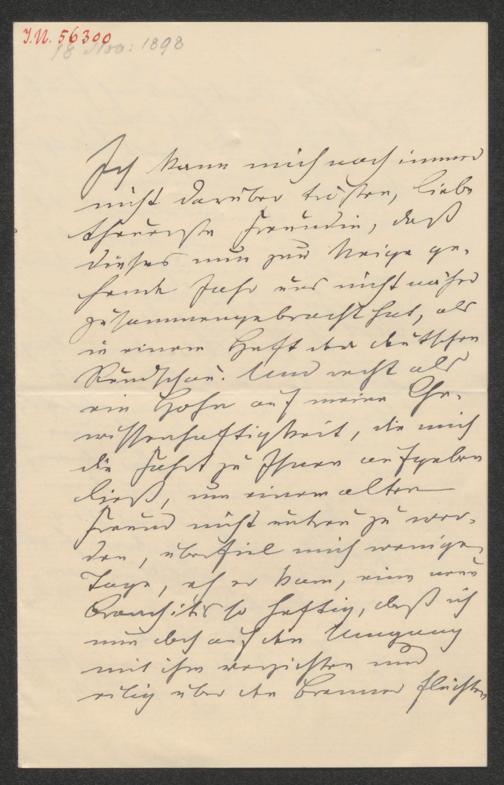 J.N. 56300
18 Nov: 1898
Ich kann mich noch immer
nicht darüber trösten, liebe
theuerste Freundin, daß
dieses nun zur Neige ge-
hende Jahr uns nicht näher
zusammengebracht hat, als
in einem Heft der deutschen
Rundschau. Und recht als
ein Hohn auf meine Ge-
wissenhaftigkeit, die mich
die Fahrt zu Ihnen aufgeben
ließ, um einem alten
Freund nicht untreu zu wer-
den, überfiel mich wenige
Tage, eh er kam, eine neue
Bronchitis so heftig, daß ich
nun doch auf den Umgang
mit ihm verzichten und
eilig über den Brenner flüchten